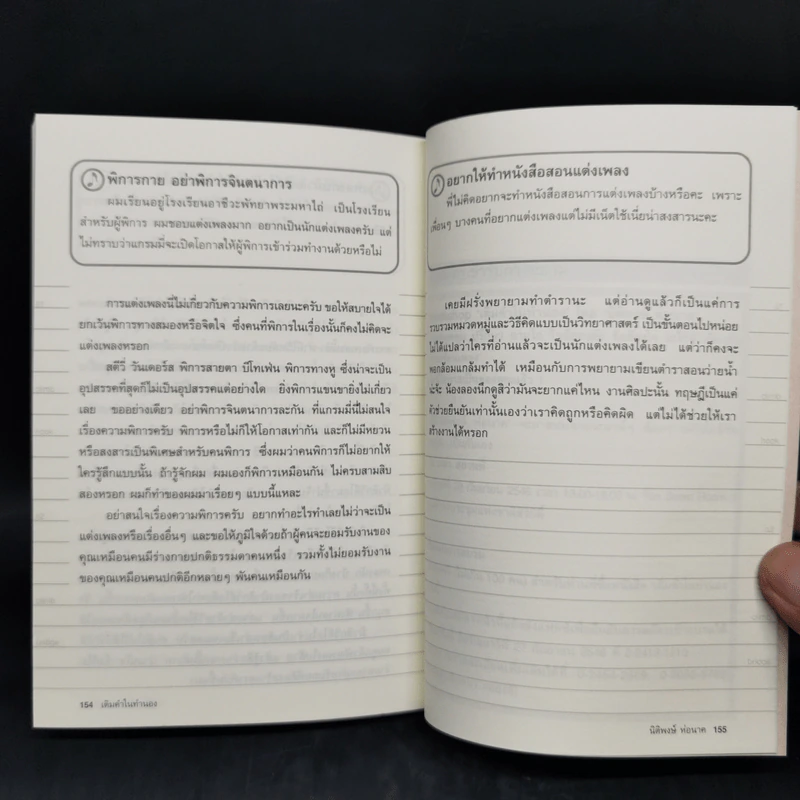 พิการกาย อย่าพิการจินตนาการ
ผมเรียนอยู่โรงเรียนอาชีวะพัทยาพระมหาไถ่ เป็นโรงเรียน
สำหรับผู้พิการ ผมชอบแต่งเพลงมาก อยากเป็นนักแต่งเพลงครับ แต่
ไม่ทราบว่าแกรมมี่จะเปิดโอกาสให้ผู้พิการเข้าร่วมทำงานด้วยหรือไม่
การแต่งเพลงนี่ไม่เกี่ยวกับความพิการเลยนะครับ ขอให้สบายใจได้
ยกเว้นพิการทางสมองหรือจิตใจ ซึ่งคนที่พิการในเรื่องนั้นก็คงไม่คิดจะ
แต่งเพลงหรอก
สตีวี่ วันเดอร์ส พิการสายตา บีโทเฟ่น พิการทางหู ซึ่งน่าจะเป็น
อุปสรรคที่สุดก็ไม่เป็นอุปสรรคแต่อย่างใด ยิ่งพิการแขนขายิ่งไม่เกี่ยว
เลย ขออย่างเดียว อย่าพิการจินตนาการละกัน ที่แกรมมี่นี่ไม่สนใจ
เรื่องความพิการครับ พิการหรือไม่ก็ให้โอกาสเท่ากัน และก็ไม่มีหยวน
หรือสงสารเป็นพิเศษสำหรับคนพิการ ซึ่งผมว่าคนพิการก็ไม่อยากให้
ใครรู้สึกแบบนั้น ถ้ารู้จักผม ผมเองก็พิการเหมือนกัน ไม่ครบสามสิบ
สองหรอก ผมก็ทำของผมมาเรื่อยๆ แบบนี้แหละ
อย่าสนใจเรื่องความพิการครับ อยากทำอะไรทำเลยไม่ว่าจะเป็น
แต่งเพลงหรือเรื่องอื่นๆ และขอให้ภูมิใจด้วยถ้าผู้คนจะยอมรับงานของ
คุณเหมือนคนมีร่างกายปกติธรรมดาคนหนึ่ง รวมทั้งไม่ยอมรับงาน
ของคุณเหมือนคนปกติอีกหลายๆ พันคนเหมือนกัน
154 เติมคำในทำนอง
อยากให้ทำหนังสือสอนแต่งเพลง
พี่ไม่คิดอยากจะทำหนังสือสอนการแต่งเพลงบ้างหรือคะ เพราะ
เพื่อนๆ บางคนที่อยากแต่งเพลงแต่ไม่มีเน็ตใช้เนี่ยน่าสงสารนะคะ
เคยมีฝรั่งพยายามทำตำรานะ แต่อ่านดูแล้วก็เป็นแค่การ
รวบรวมหมวดหมู่และวิธีคิดแบบเป็นวิทยาศาสตร์ เป็นขั้นตอนไปหน่อย
ไม่ได้แปลว่าใครที่อ่านแล้วจะเป็นนักแต่งเพลงได้เลย แต่ว่าก็คงจะ
พอกล้อมแกล้มทำได้ เหมือนกับการพยายามเขียนตำราสอนว่ายน้ำ
น่ะจ้ะ น้องลองนึกดูสิว่ามันจะยากแค่ไหน งานศิลปะนั้น ทฤษฎีเป็นแค่
ตัวช่วยยืนยันเท่านั้นเองว่าเราคิดถูกหรือคิดผิด แต่ไม่ได้ช่วยให้เรา
สร้างงานได้หรอก
นิติพงษ์ ห่อนาค 155